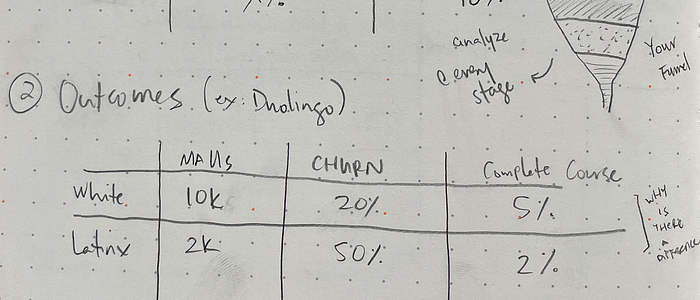 analyze
@ every
stage
Your
Funnel
② Outcomes (ex: Duolingo)
MAUs CHURN Complete Course
White 10K 20% 5%
Latinx 2K 50% 2%
WHY
IS
THERE
a
DIFFERENCE